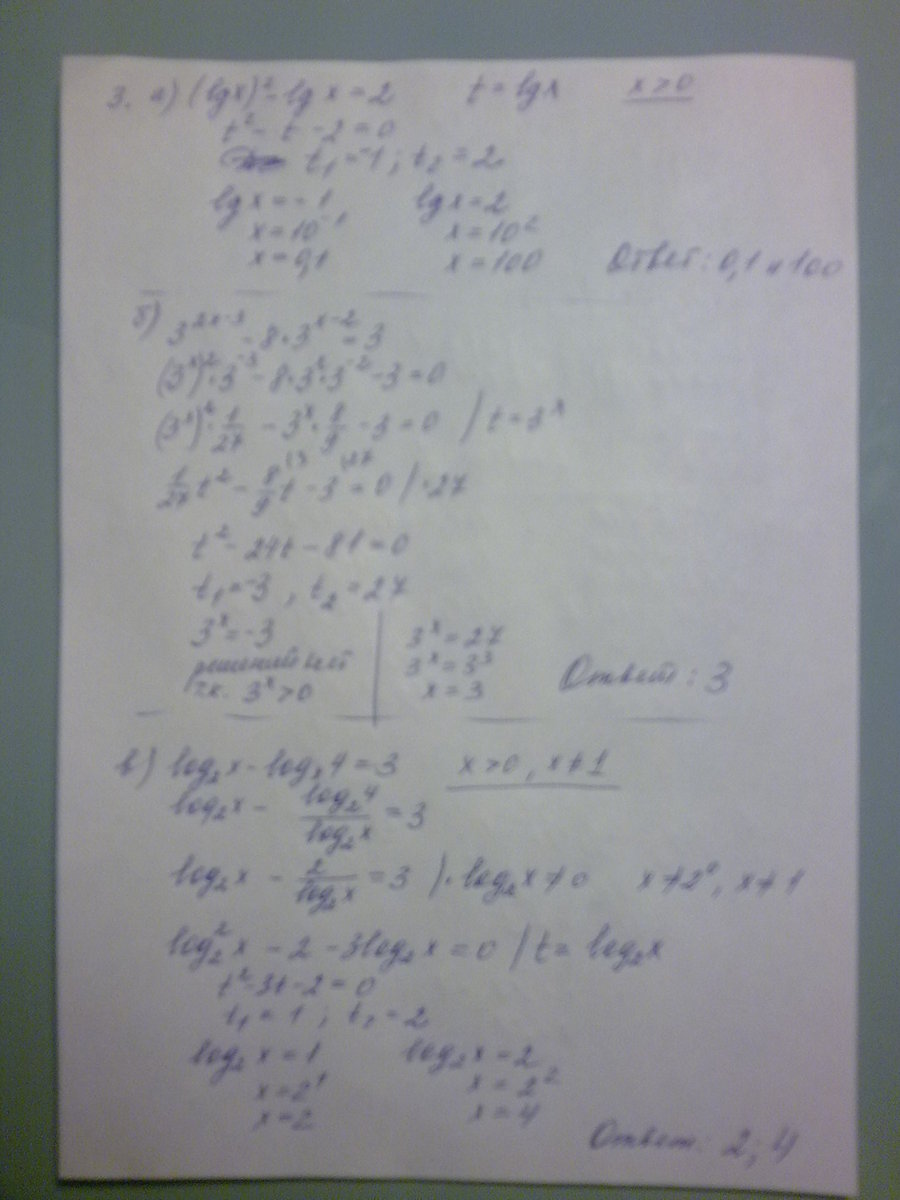 3. а) (lgx)² - lg x = 2 t = lgx x>0
t² - t - 2 = 0
t₁ = -1 ; t₂ = 2
lgx = -1 lgx = 2
x = 10⁻¹ x = 10²
x = 0,1 x = 100 Ответ: 0,1 и 100
б) 3^(2x-3) - 8·3^(x-2) = 3
(3ˣ)²·3⁻³ - 8·3ˣ·3⁻² - 3 = 0
(3ˣ)²·1/27 - 3ˣ·8/9 - 3 = 0 / t = 3ˣ
1/27 t² - 8/9 t - 3 = 0 / ·27
t² - 24t - 81 = 0
t₁ = -3 , t₂ = 27
3ˣ = -3 3ˣ = 27
решений нет 3ˣ = 3³
т.к. 3ˣ > 0 x = 3 Ответ: 3
в) log₂x - logₓ4 = 3 x>0, x≠1
log₂x - log₂4/log₂x = 3
log₂x - 2/log₂x = 3 /· log₂x ≠ 0 x ≠ 2⁰, x ≠ 1
log₂²x - 2 - 3log₂x = 0 / t = log₂x
t² - 3t - 2 = 0
t₁ = 1 ; t₂ = 2
log₂x = 1 log₂x = 2
x = 2¹ x = 2²
x = 2 x = 4
Ответ: 2; 4